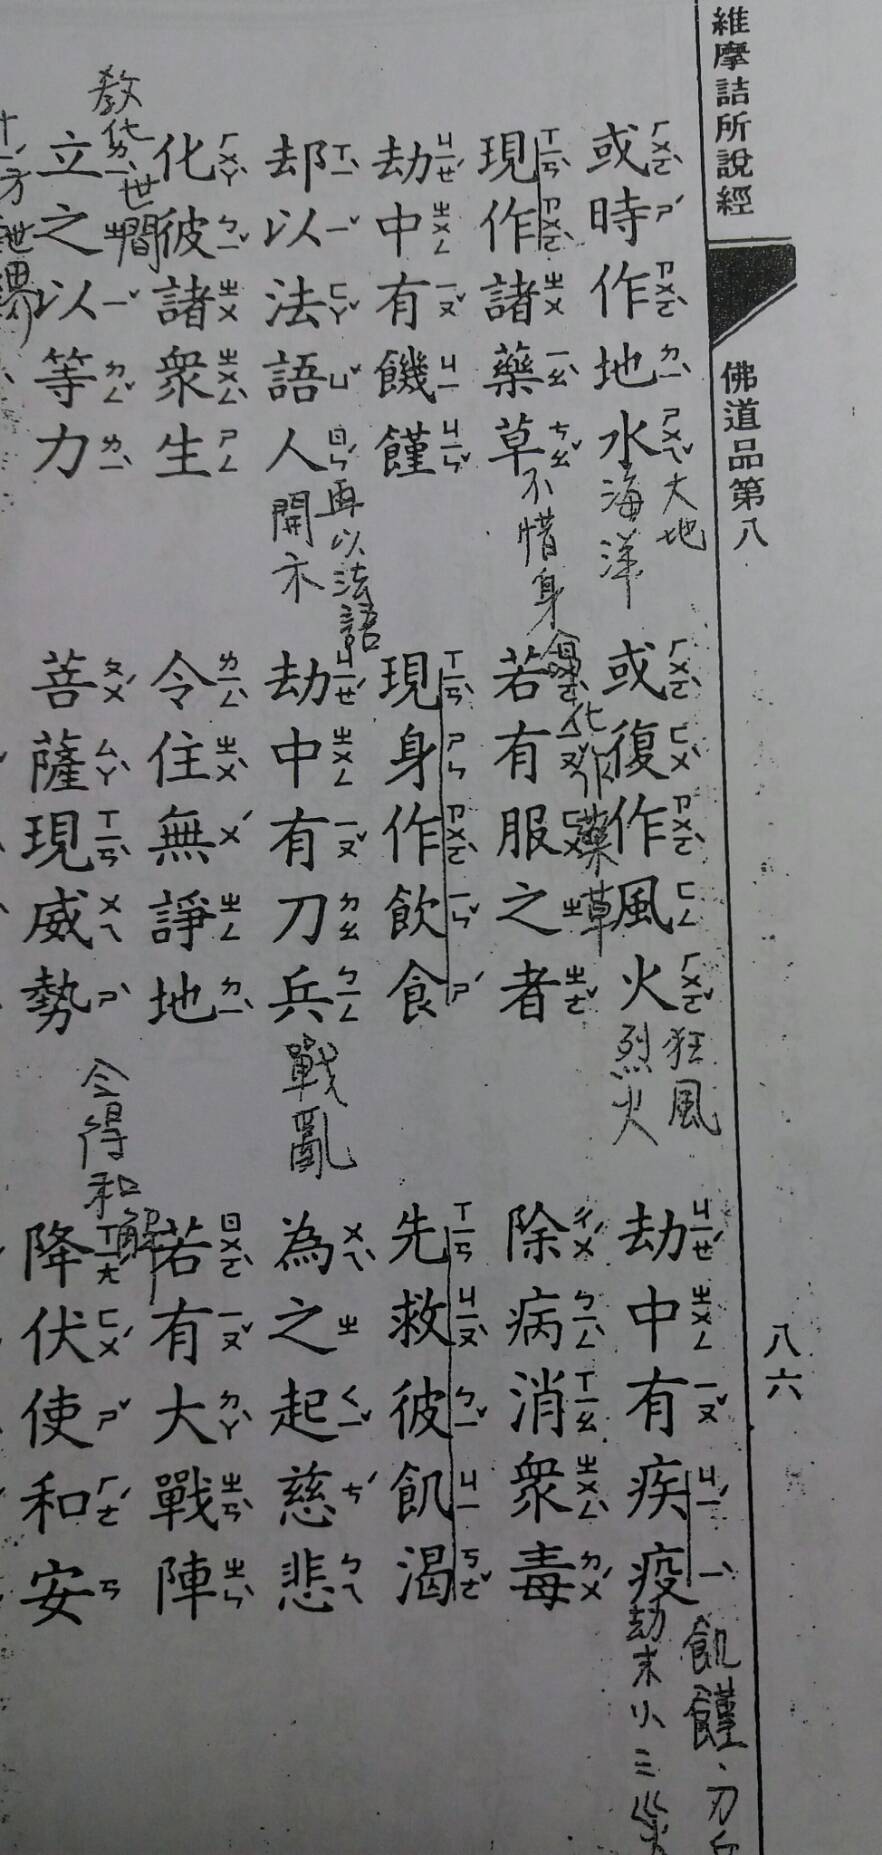 維摩詰所說經
佛道品第八
八六
或時作地水 或復作風火 劫中有疾疫
現作諸藥草 若有服之者 除病消衆毒
劫中有饑饉 現身作飲食 先救彼飢渴
却以法語人 劫中有刀兵 為之起慈悲
化彼諸衆生 令住無諍地 若有大戰陣
立之以等力 菩薩現威勢 降伏使和安
大地
海洋
狂風
烈火
飢饉、刀
劫末小三災
不惜身命化作藥草
再以法語
開示
戰亂
教化世間
令得和解
十方世界